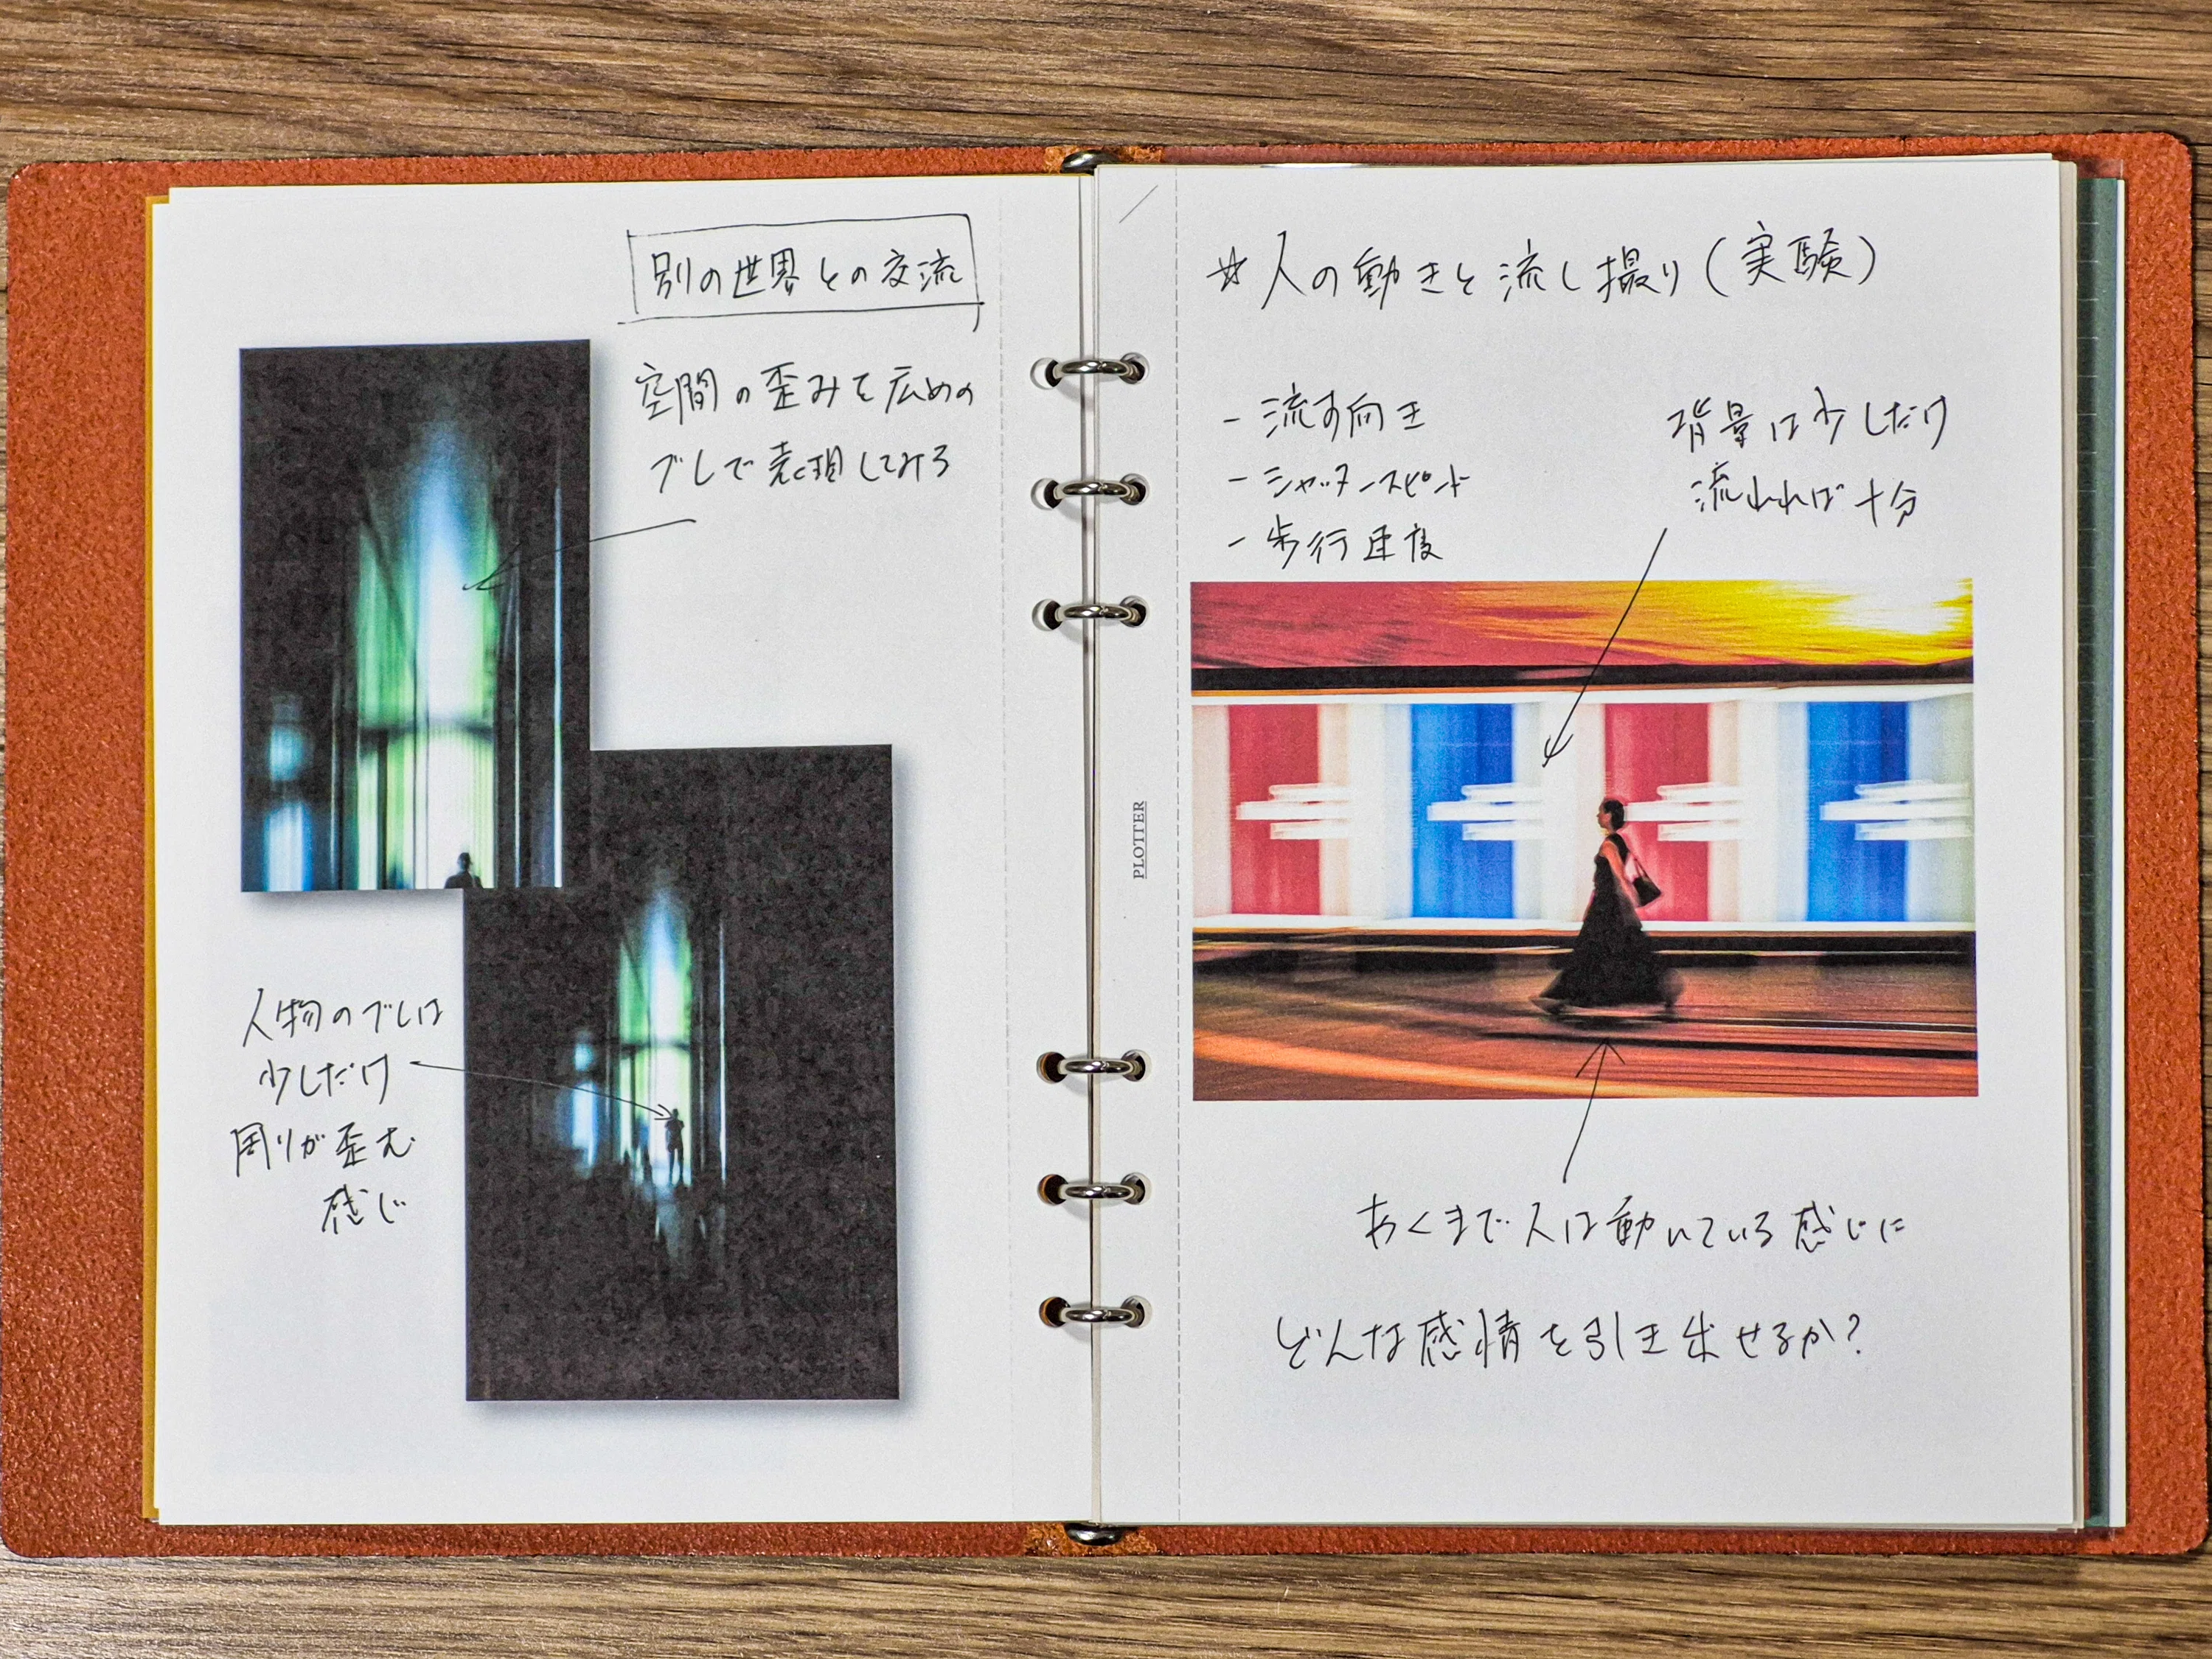 別の世界との交流
空間の歪みを広めの
ブレで表現してみる
人物のブレは
少しだけ
周りが歪む
感じ
PLOTTER
☆人の動きと流し撮り(実験)
- 流す向き
- シャッタースピード
- 歩行速度
背景は少しだけ
流れれば十分
あくまで人は動いている感じに
どんな感情を引き出せるか?